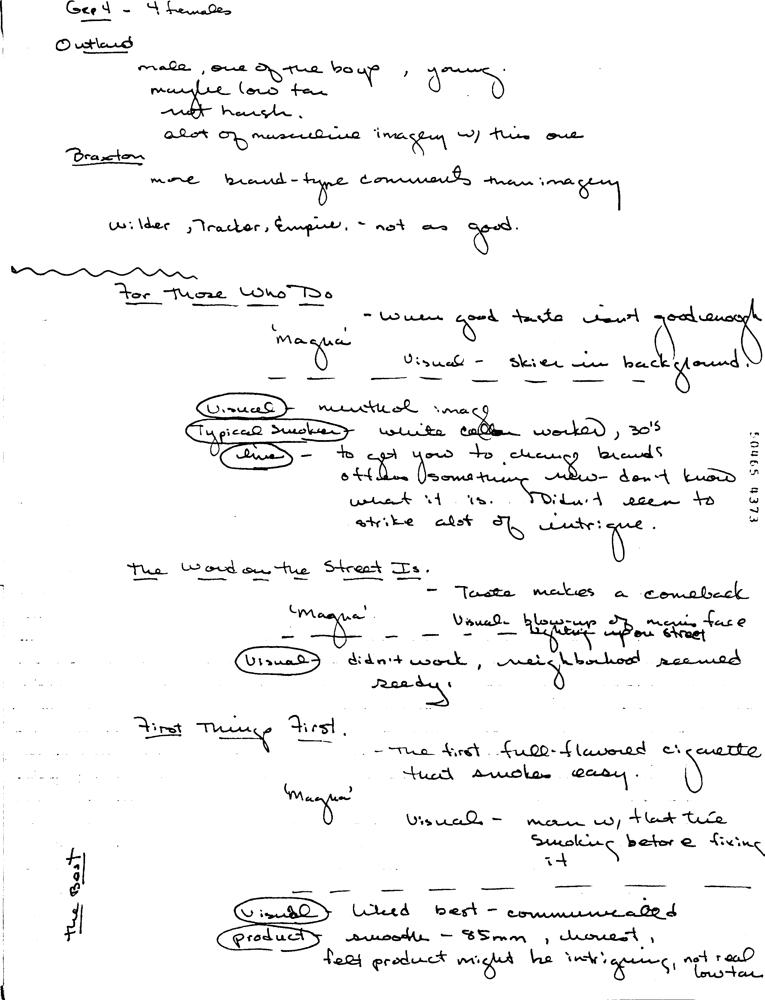 Grp 4 - 4 females
Outland
male, one of the boys, young.
maybe low tar
not harsh.
alot of masculine imagery w/ this one
Braxton
more brand-type comments than imagery
Wilder, Tracker, Empire. - not as good.
For Those Who Do
- When good taste isn't good enough
'Magna'
Visual - skier in background.
Visual - menthol image
Typical Smoker - white collar worker, 30's
line - to get you to change brands
offers something new - don't know
what it is. Didn't seem to
strike alot of intrigue.
50465 4373
The Word on the Street Is.
- Taste makes a comeback
'Magna'
Visual - blow-up of man's face
lighting up on street
Visual - didn't work, neighborhood seemed
seedy.
First Things First.
- The first full-flavored cigarette
that smokes easy.
'Magna'
Visual - man w/ flat tire
smoking before fixing
it
the Best
Visual - liked best - communicated
product - smooth - 85mm, honest,
felt product might be intriguing, not real
low tar